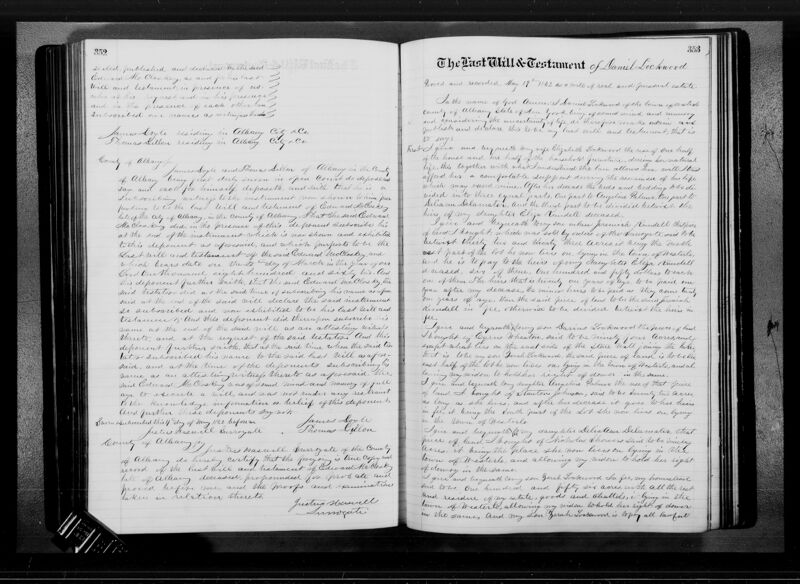 352
sealed, published, and declared by the said
Edward McCloskey, as and for his last
Will and testament in presence of us
who at his request and in his presence
and in the presence of each other have
subscribed our names as witnesses
James Coyle residing in Albany City & Co.
Thomas Dillon residing in Albany City & Co.
County of Albany
James Coyle and Thomas Dillon of Albany in the County
of Albany being first duly sworn in open Court do depose and
say and each for himself deposeth and saith that he is a
subscribing witness to the instrument now shown to him pur-
porting to be the last Will and testament of Edward McCloskey
late of the City of Albany, in the County of Albany. That the said Edward
McCloskey did in the presence of this deponent subscribe his
at the end of the instrument which is now shown and exhibited
to this deponent as aforesaid, and which purports to be the
Last Will and testament of the said Edward McCloskey, and
which bears date on the day of March in the year of our
Lord One thousand eight hundred and sixty two. And
this deponent further saith, that the said Edward McCloskey, the
said testator did at the said time of subscribing his name as afore-
said at the end of the said will declare the said instrument
so subscribed and now exhibited to be his last Will and
testament; And this deponent did thereupon subscribe his
name at the end of the said will as an attesting witness
thereto, and at the request of the said testator. And this
deponent further saith, that at the said time when the said tes-
tator subscribed his name to the said last Will as afore-
said, and at the time of the deponents subscribing his
name as an attesting witness thereto as aforesaid the
said Edward McCloskey was of sound mind and memory of full
age to execute a will and was not under any restraint
to the knowledge information or belief of this deponent
And further this deponents say not.
Sworn subscribed this day of May 1862 before me
James Coyle
Justus Haswell Surrogate
Thomas Dillon
County of Albany
I Justus Haswell Surrogate of the County
of Albany do hereby certify that the foregoing is true copy and
record of the last Will and testament of Edward McCloskey
late of Albany deceased propounded for probate and
proved before me and the proofs and examinations
taken in relation thereto
Justus Haswell
Surrogate
353
The Last Will & Testament of Daniel Lockwood
Proved and recorded May 19th 1862 as a will of real and personal estate
In the name of God Amen. I Daniel Lockwood of the town of
county of Albany State of New York being of sound mind and memory
and considering the uncertainty of life do therefore make ordain and
publish and declare this to be my last will and testament, that is
to say;
First I give and bequeath my wife Elizabeth Lockwood the use of one half
of the house and one half of the household furniture, during her natural
life, this together with what the law allows her will
afford her a comfortable support during the remainder of his life
which may need mine. After her decease the beds and bedding to be di-
vided into three equal parts. One part to Angelina Palmer, One part to
Delia Ann Delamater, and the third part to be divided between the
heirs of my daughter Eliza Rundell deceased.
I give and bequeath to my son in law Jeremiah Rundell
of land I bought, which was sold by order of the Surrogate and
betwixt thirty two and thirty three acres being the north
east part of the lot he now lives on lying in the town of Westerlo,
and he is to pay to the heirs of my daughter Eliza Rundell
deceased, six of them, One hundred and fifty dollars to each
one of them. The heirs that is twenty one years of age to be paid one
year after my decease, the minor heirs to be paid as they come twenty
one years of age. Then the said piece of land to be the said Jeremiah
Rundell in fee, otherwise to be divided betwixt the heirs in
fee.
I give and bequeath to my son Darius Lockwood the piece of land
I bought of Cyrus Wheaton, said to be twenty four acres
on the east side of the stone wall, joining the lake,
that is to be my son Zerah Lockwood, the said piece of land is to be the
east half of the lot he now lives on, lying in the town of Westerlo, and al-
lowing my widow to hold her right of dower in the same.
I give and bequeath my daughter Angelina Palmer the use of that piece
of land I bought of Stanton Johnson, said to be twenty two acres
so long as she lives, and after her decease to go to her heirs
in fee it being the south part of the lot she now lives on lying
in the town of Westerlo.
I give and bequeath to my daughter Delia Ann Delamater, that
piece of land I bought of Nicholas Stevens said to be ninety
acres it being the place she now lives on lying in the
town of Westerlo, and allowing my widow to hold her right
of dower in the same.
I give and bequeath my son Zerah Lockwood in fee, my homestead
said to be One hundred and fifty six acres with all the rest
and residue of my estate, goods and chattles, lying in the
town of Westerlo, allowing my widow to hold her right of dower
in the same, and my son Zerah Lockwood is to pay all lawful